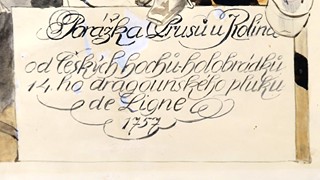 Porážka Prusů u Kolína
od českých hochů-holobrádků
14.ho dragounského pluku
de Ligne
1757